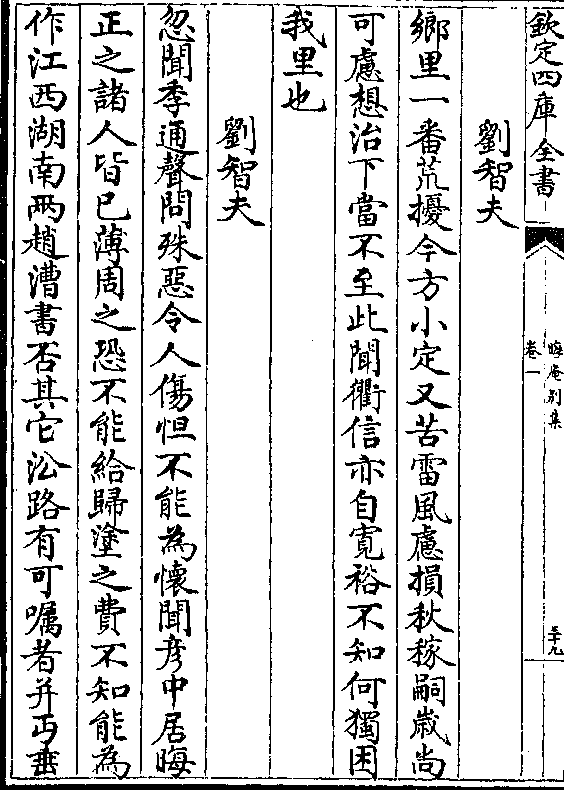 欽定四庫全書
晦庵別集
卷一
三十九
劉智夫
鄉里一番荒擾今方小定又苦雷風慮損秋稼嗣歲尚
可慮想治下當不至此聞衢信亦自寛裕不知何獨困
我里也
劉智夫
忽聞季通聲問殊惡令人傷怛不能為懷聞彦中居晦
正之諸人皆已薄周之恐不能給歸塗之費不知能為
作江西湖南兩趙漕書否其它沿路有可囑者并丐垂